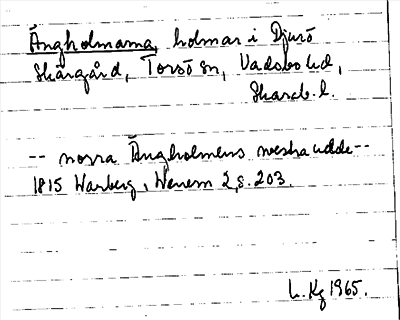 Ängholmarna, holmar i Djurö
Skärgård, Torsö sn, Vadsbo hd,
Skarab. l.
-- norra Ängholmens westra udde --
1815 Warberg, Wenern 2, s. 203.
L. Kg 1965.